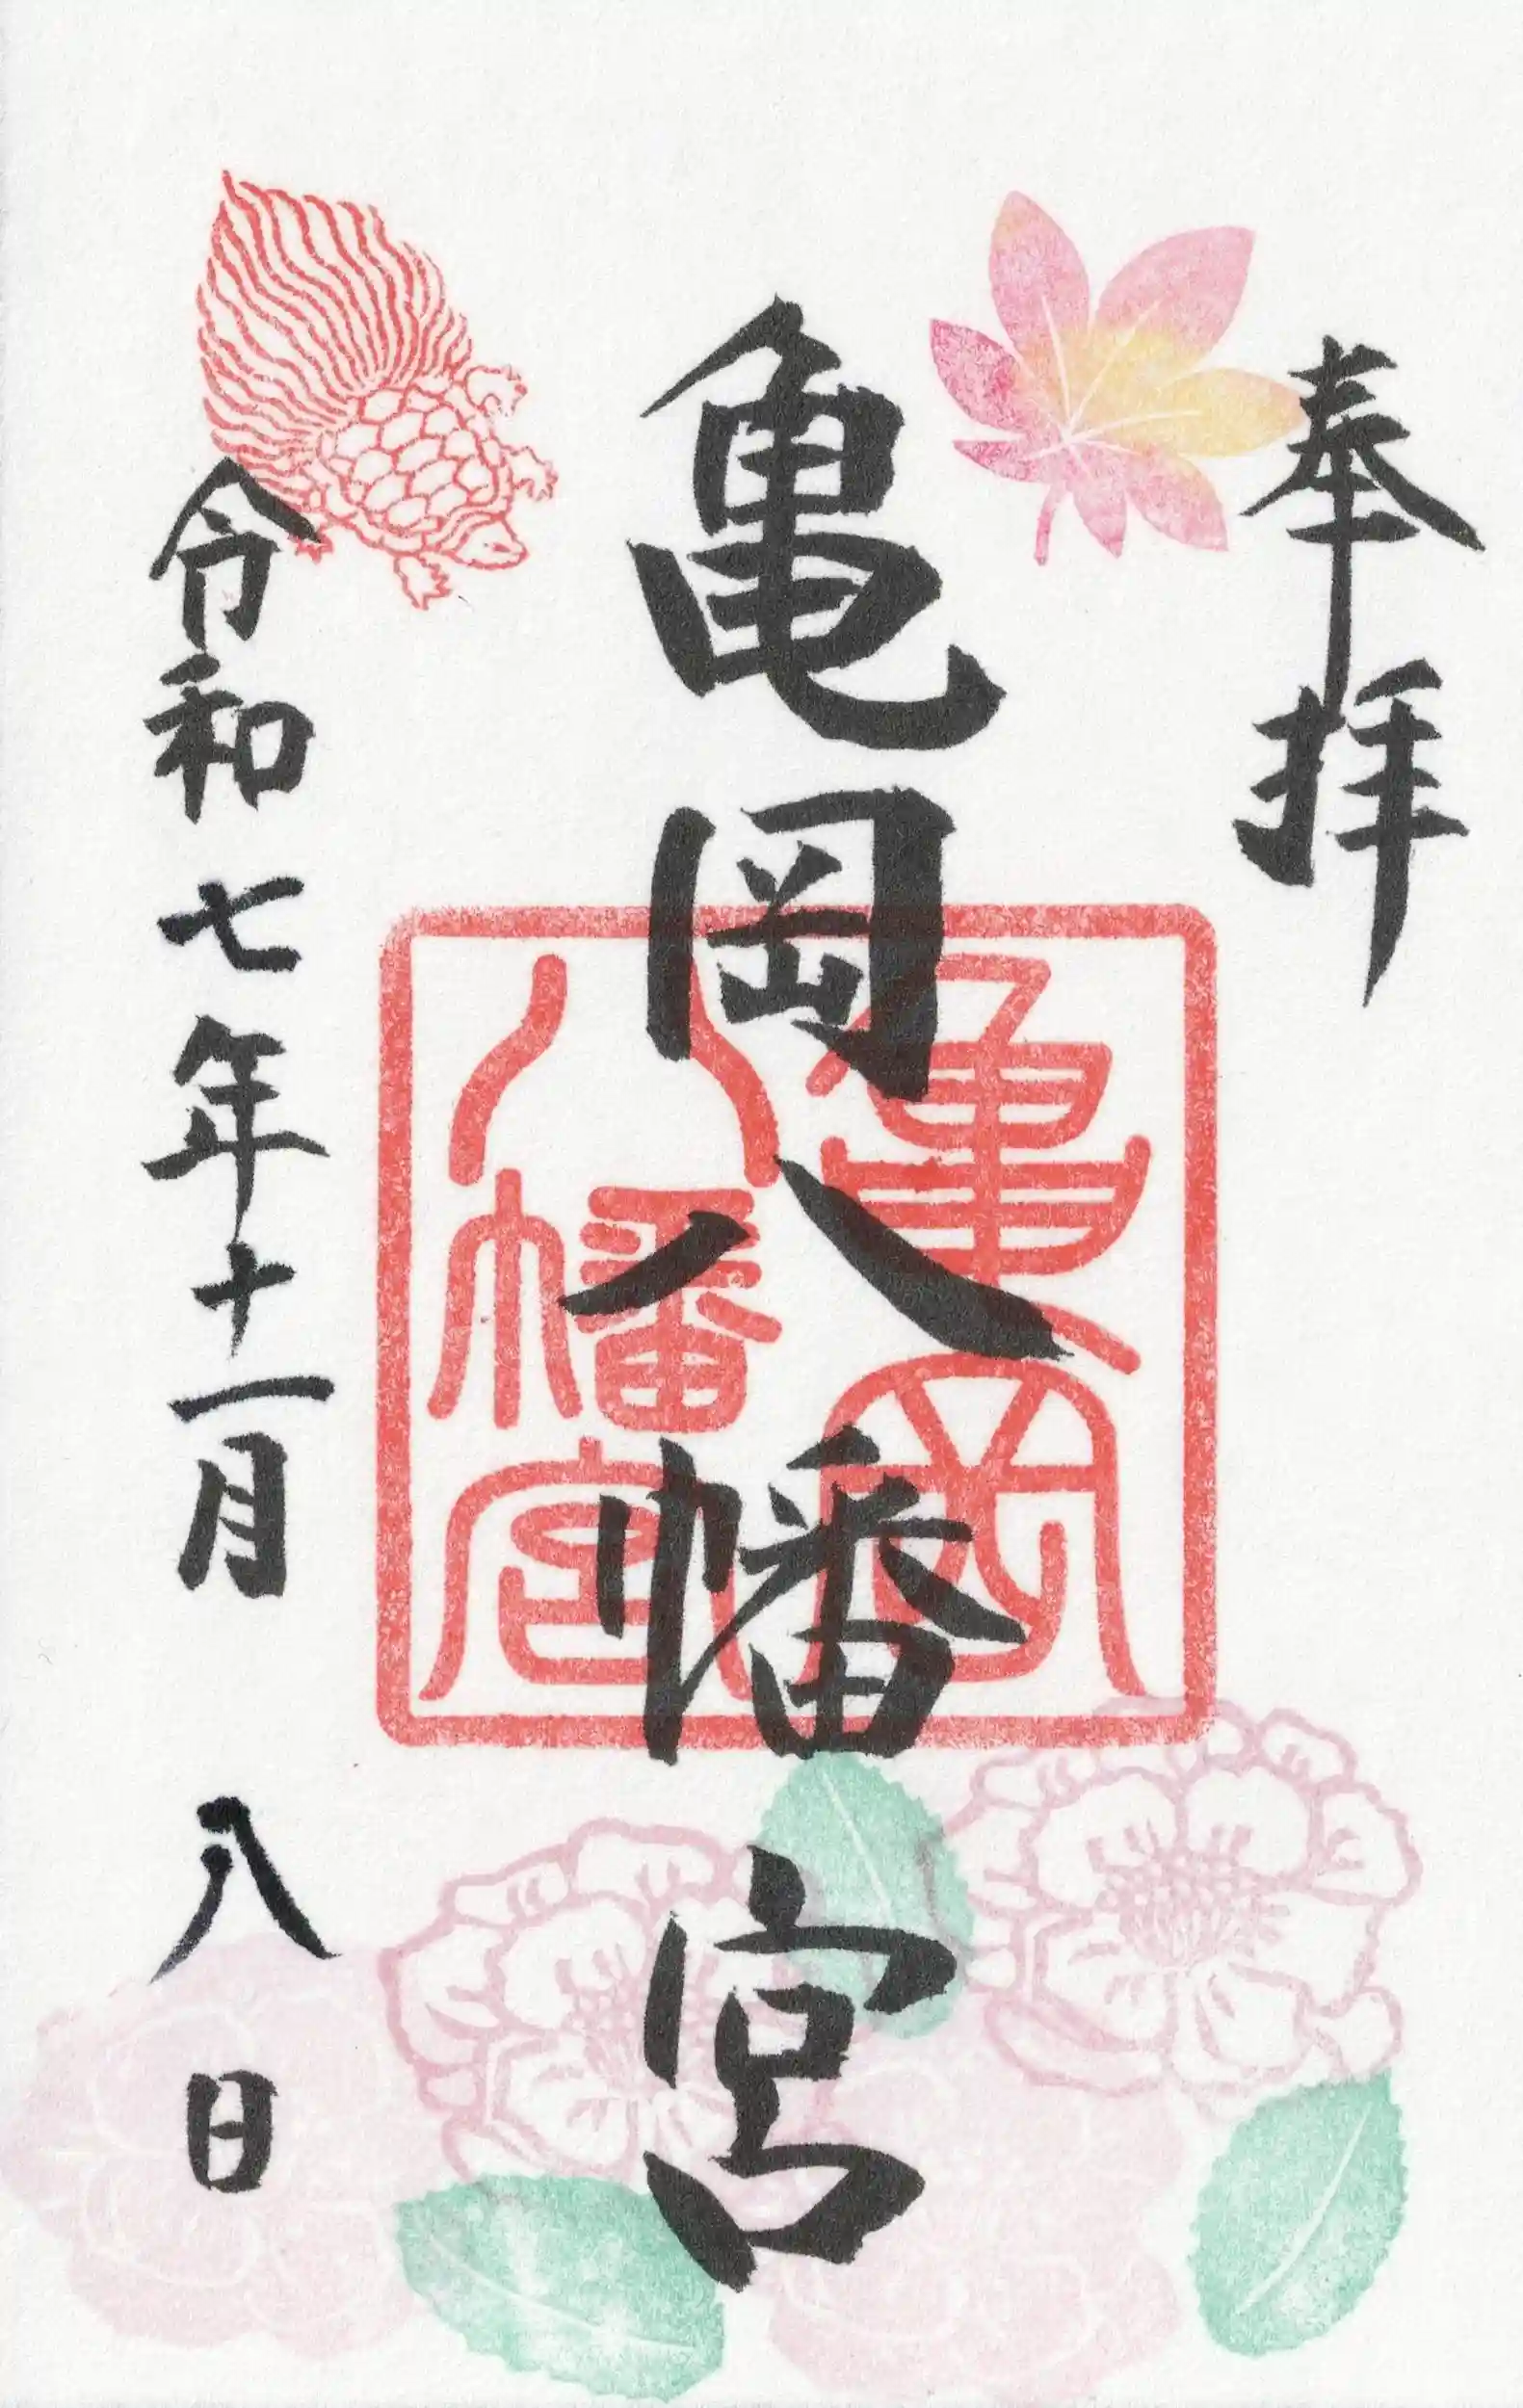 奉拝
亀岡八幡宮
亀岡
八幡宮
令和七年十一月八日